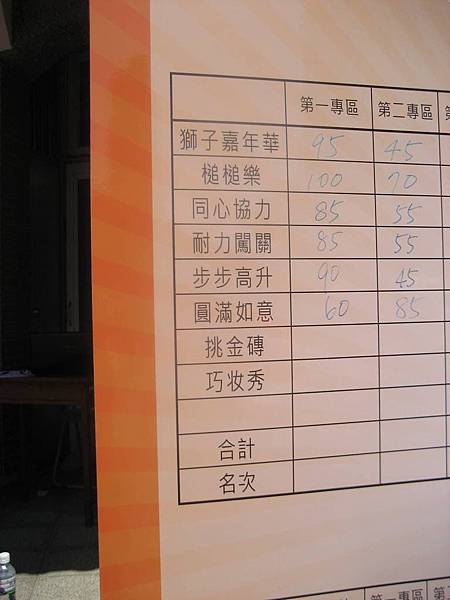 第一專區 第二專區
獅子嘉年華 95 45
槌槌樂 100 70
同心協力 85 55
耐力闖關 85 55
步步高升 90 45
圓滿如意 60 85
挑金磚
巧妝秀
合計
名次
第一專區